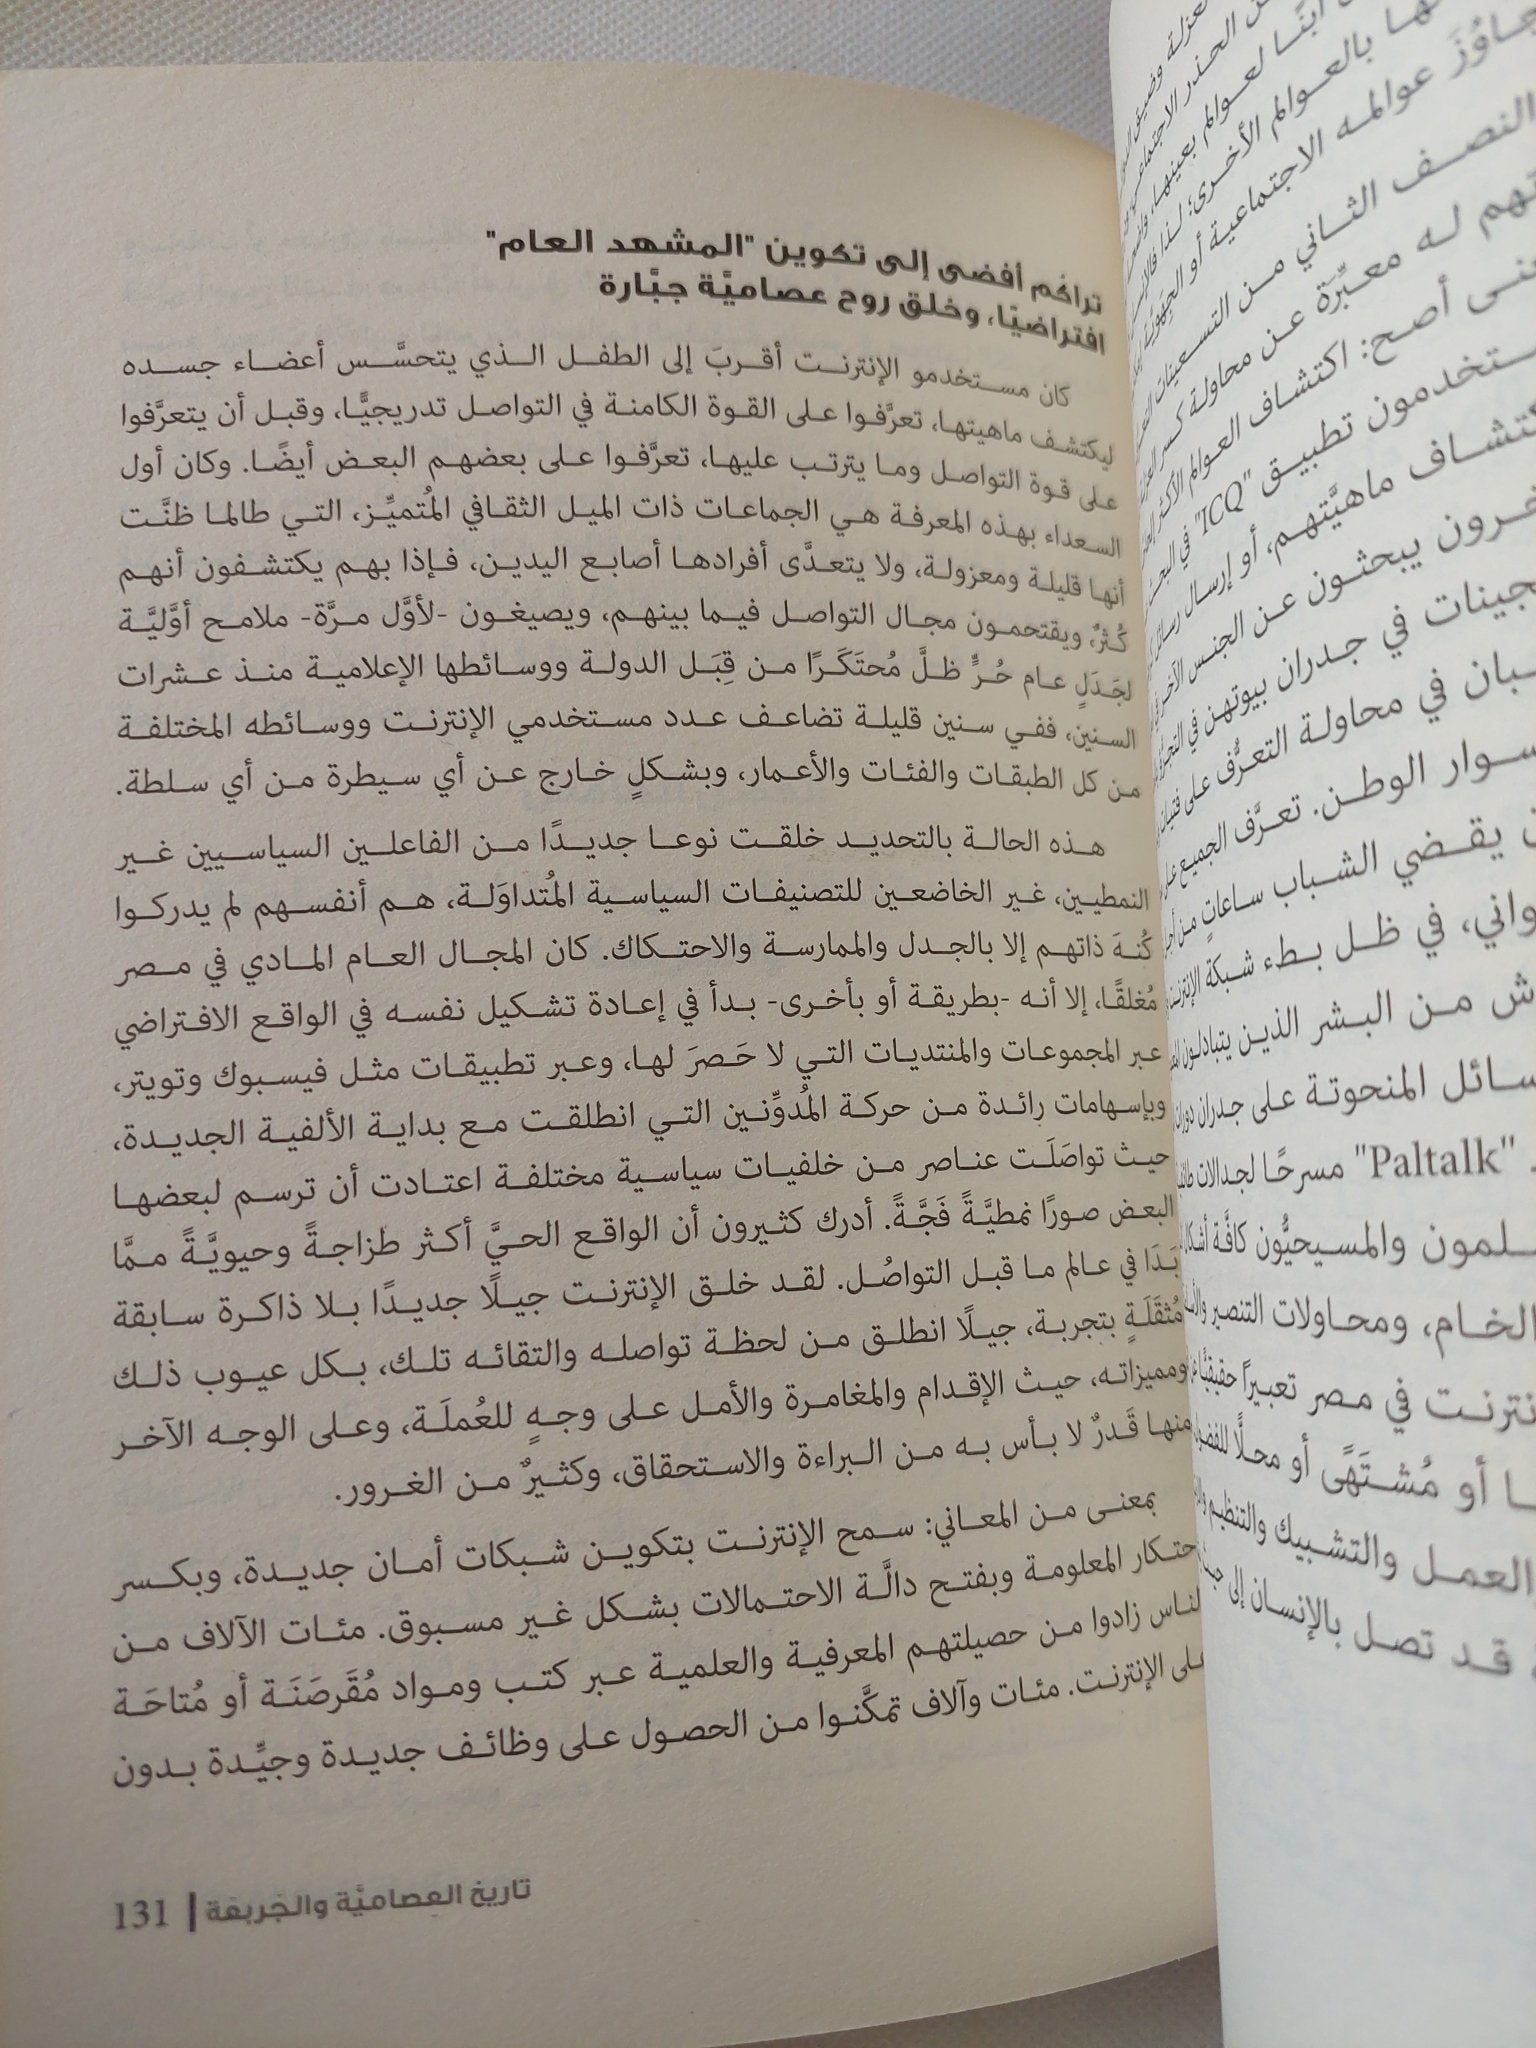 تراكُم أفضى إلى تكوين "المشهد العام"
افتراضيًا، وخلق روح عصاميَّة جبَّارة
كان مستخدمو الإنترنت أقربَ إلى الطفل الذي يتحسَّس أعضاء جسده
ليكتشف ماهيتها، تعرَّفوا على القوة الكامنة في التواصل تدريجيًّا، وقبل أن يتعرَّفوا
على قوة التواصل وما يترتب عليها، تعرَّفوا على بعضهم البعض أيضًا. وكان أول
السعداء بهذه المعرفة هي الجماعات ذات الميل الثقافي المُتميِّز، التي طالما ظنَّت
أنها قليلة ومعزولة، ولا يتعدَّى أفرادها أصابع اليدين، فإذا بهم يكتشفون أنهم
كُثرٌ، ويقتحمون مجال التواصل فيما بينهم، ويصيغون -لأوَّل مرَّة- ملامح أوَّليَّة
لجَدَلٍ عام حُرٍّ ظلَّ مُحتَكَرًا من قِبَل الدولة ووسائطها الإعلامية منذ عشرات
السنين، ففي سنين قليلة تضاعف عدد مستخدمي الإنترنت ووسائطه المختلفة
من كل الطبقات والفئات والأعمار، وبشكلٍ خارج عن أي سيطرة من أي سلطة.
هذه الحالة بالتحديد خلقت نوعا جديدًا من الفاعلين السياسيين غير
النمطيين، غير الخاضعين للتصنيفات السياسية المُتداوَلة، هم أنفسهم لم يدركوا
كُنهَ ذاتهم إلا بالجدل والممارسة والاحتكاك. كان المجال العام المادي في مصر
مُغلقًا، إلا أنه -بطريقة أو بأخرى- بدأ في إعادة تشكيل نفسه في الواقع الافتراضي
عبر المجموعات والمنتديات التي لا حَصرَ لها، وعبر تطبيقات مثل فيسبوك وتويتر،
وبإسهامات رائدة من حركة المُدوِّنين التي انطلقت مع بداية الألفية الجديدة،
حيث تواصَلَت عناصر من خلفيات سياسية مختلفة اعتادت أن ترسم لبعضها
البعض صورًا نمطيَّةً فَجَّةً. أدرك كثيرون أن الواقع الحيَّ أكثر طزاجةً وحيويَّةً ممَّا
بَدَا في عالم ما قبل التواصُل. لقد خلق الإنترنت جيلًا جديدًا بلا ذاكرة سابقة
مُثقَلَةٍ بتجربة، جيلًا انطلق من لحظة تواصله والتقائه تلك، بكل عيوب ذلك
ومميزاته، حيث الإقدام والمغامرة والأمل على وجهٍ للعُملَة، وعلى الوجه الآخر
منها قَدرٌ لا بأس به من البراءة والاستحقاق، وكثيرٌ من الغرور.
بمعنى من المعاني: سمح الإنترنت بتكوين شبكات أمان جديدة، وبكسر
احتكار المعلومة وبفتح دالَّة الاحتمالات بشكل غير مسبوق. مئات الآلاف من
الناس زادوا من حصيلتهم المعرفية والعلمية عبر كتب ومواد مُقَرصَنَة أو مُتاحَة
على الإنترنت. مئات وآلاف تمكَّنوا من الحصول على وظائف جديدة وجيِّدة بدون
تاريخ العصاميَّة والجَربعة | 131
ابنًا لعوالم بعينها،
بالعوالم الأخرى؛ لذا
عوالمه الاجتماعية أو
النصف الثاني من التسعينات
له معبِّرة عن محاولة كسر
أصح: اكتشاف العوالم الأكثر
تطبيق "ICQ" في
ماهيَّتهم، أو إرسال
يبحثون عن الجنس الآخر
في جدران بيوتهن في
في محاولة التعرُّف على
الوطن. تعرَّف الجميع
يقضي الشباب ساعاتٍ من
في ظل بطء شبكة
من البشر الذين يتبادلون
المنحوتة على جدران
"Paltalk" مسرحًا لجدالات
والمسيحيُّون كافَّة
الخام، ومحاولات التنصير
في مصر تعبيرًا حقيقيًّا
أو مُشتَهًى أو محلًّا
العمل والتشبيك والتنظيم
قد تصل بالإنسان إلى